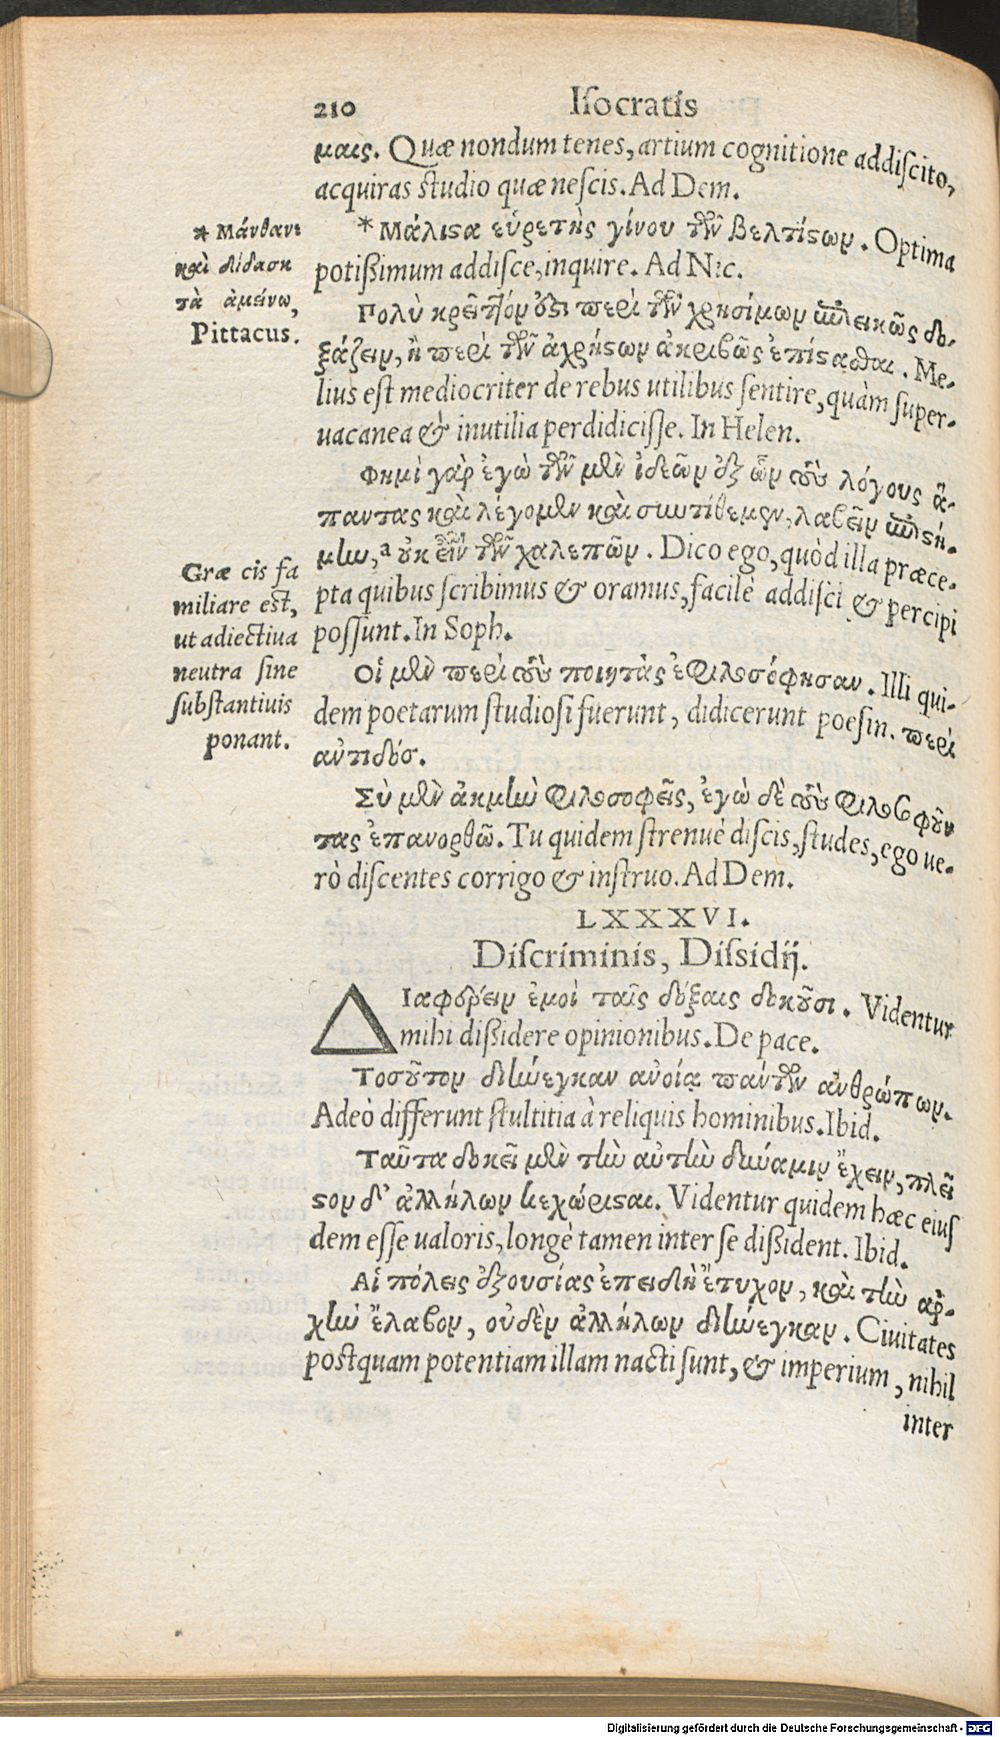 210 Iſocratis
μαις. Quæ nondum tenes, artium cognitione addiſcito,
acquiras ſtudio quæ neſcis. Ad Dem.
* Μάλιϛα εὑρετὴς γίνου τῶν βελτίϛων. Optima
potißimum addiſce, inquire. Ad Nic.
* Μάνθανε
καὶ δίδασκ
τὰ ἀμείνω,
Pittacus.
Πολὺ κρεῖττόν ὅϛι περὶ τῶν χρησίμων ἐπιεικῶς δο-
ξάζειν, ἢ περὶ τῶν ἀχρήϛων ἀκριβῶς ἐπίϛαθαι. Me-
lius eſt mediocriter de rebus utilibus ſentire, quàm ſuper-
uacanea & inutilia perdidiciſſe. In Helen.
Φημὶ γὰρ ἐγὼ τῶν μὲν ἰδεῶν ἐξ ὧν τοὺς λόγους ἅ-
παντας καὶ λέγομεν καὶ συντίθεμεν, λαβεῖν ἐπιϛή-
μην, ª οὐκ εἶναι τῶν χαλεπῶν. Dico ego, quòd illa præce-
pta quibus ſcribimus & oramus, facilè addiſci & percipi
poſſunt. In Soph.
Græcis fa
miliare est,
ut adiectiua
neutra ſine
ſubſtantiuis
ponant.
Οἱ μὲν περὶ τοὺς ποιητὰς ἐφιλοσόφησαν. Illi qui-
dem poetarum ſtudioſi fuerunt, didicerunt poeſin. περὶ
αὐτιδόσ.
Σὺ μὲν ἀκμὴν φιλοσοφεῖς, ἐγὼ δὲ τοὺς φιλοσοφοῦν
τας ἐπανορθῶ. Tu quidem ſtrenuè diſcis, ſtudes, ego ue-
rò diſcentes corrigo & inſtruo. Ad Dem.
LXXXVI.
Diſcriminis, Diſsidij.
ΔΙαφέρειν ἐμοὶ ταῖς δόξαις δοκοῦσι. Videntur
mihi dißidere opinionibus. De pace.
Τοσοῦτον διήνεγκαν ἀνοίᾳ πάντων ἀνθρώπων.
Adeò differunt ſtultitia à reliquis hominibus. Ibid.
Ταῦτα δοκεῖ μὲν τὴν αὐτὴν δύναμιν ἔχειν, πλεῖ
ϛον δ' ἀλλήλων κεχώριϛαι. Videntur quidem hæc eiuſ
dem eſſe ualoris, longè tamen inter ſe dißident. Ibid.
Αἱ πόλεις ἐξουσίας ἐπειδὴ ἔτυχον, καὶ τὴν ἀρ-
χὴν ἔλαβον, οὐδὲν ἀλλήλων διήνεγκαν. Ciuitates
poſtquam potentiam illam nacti ſunt, & imperium, nihil
inter
Digitalisierung gefördert durch die Deutsche Forschungsgemeinschaft - DFG